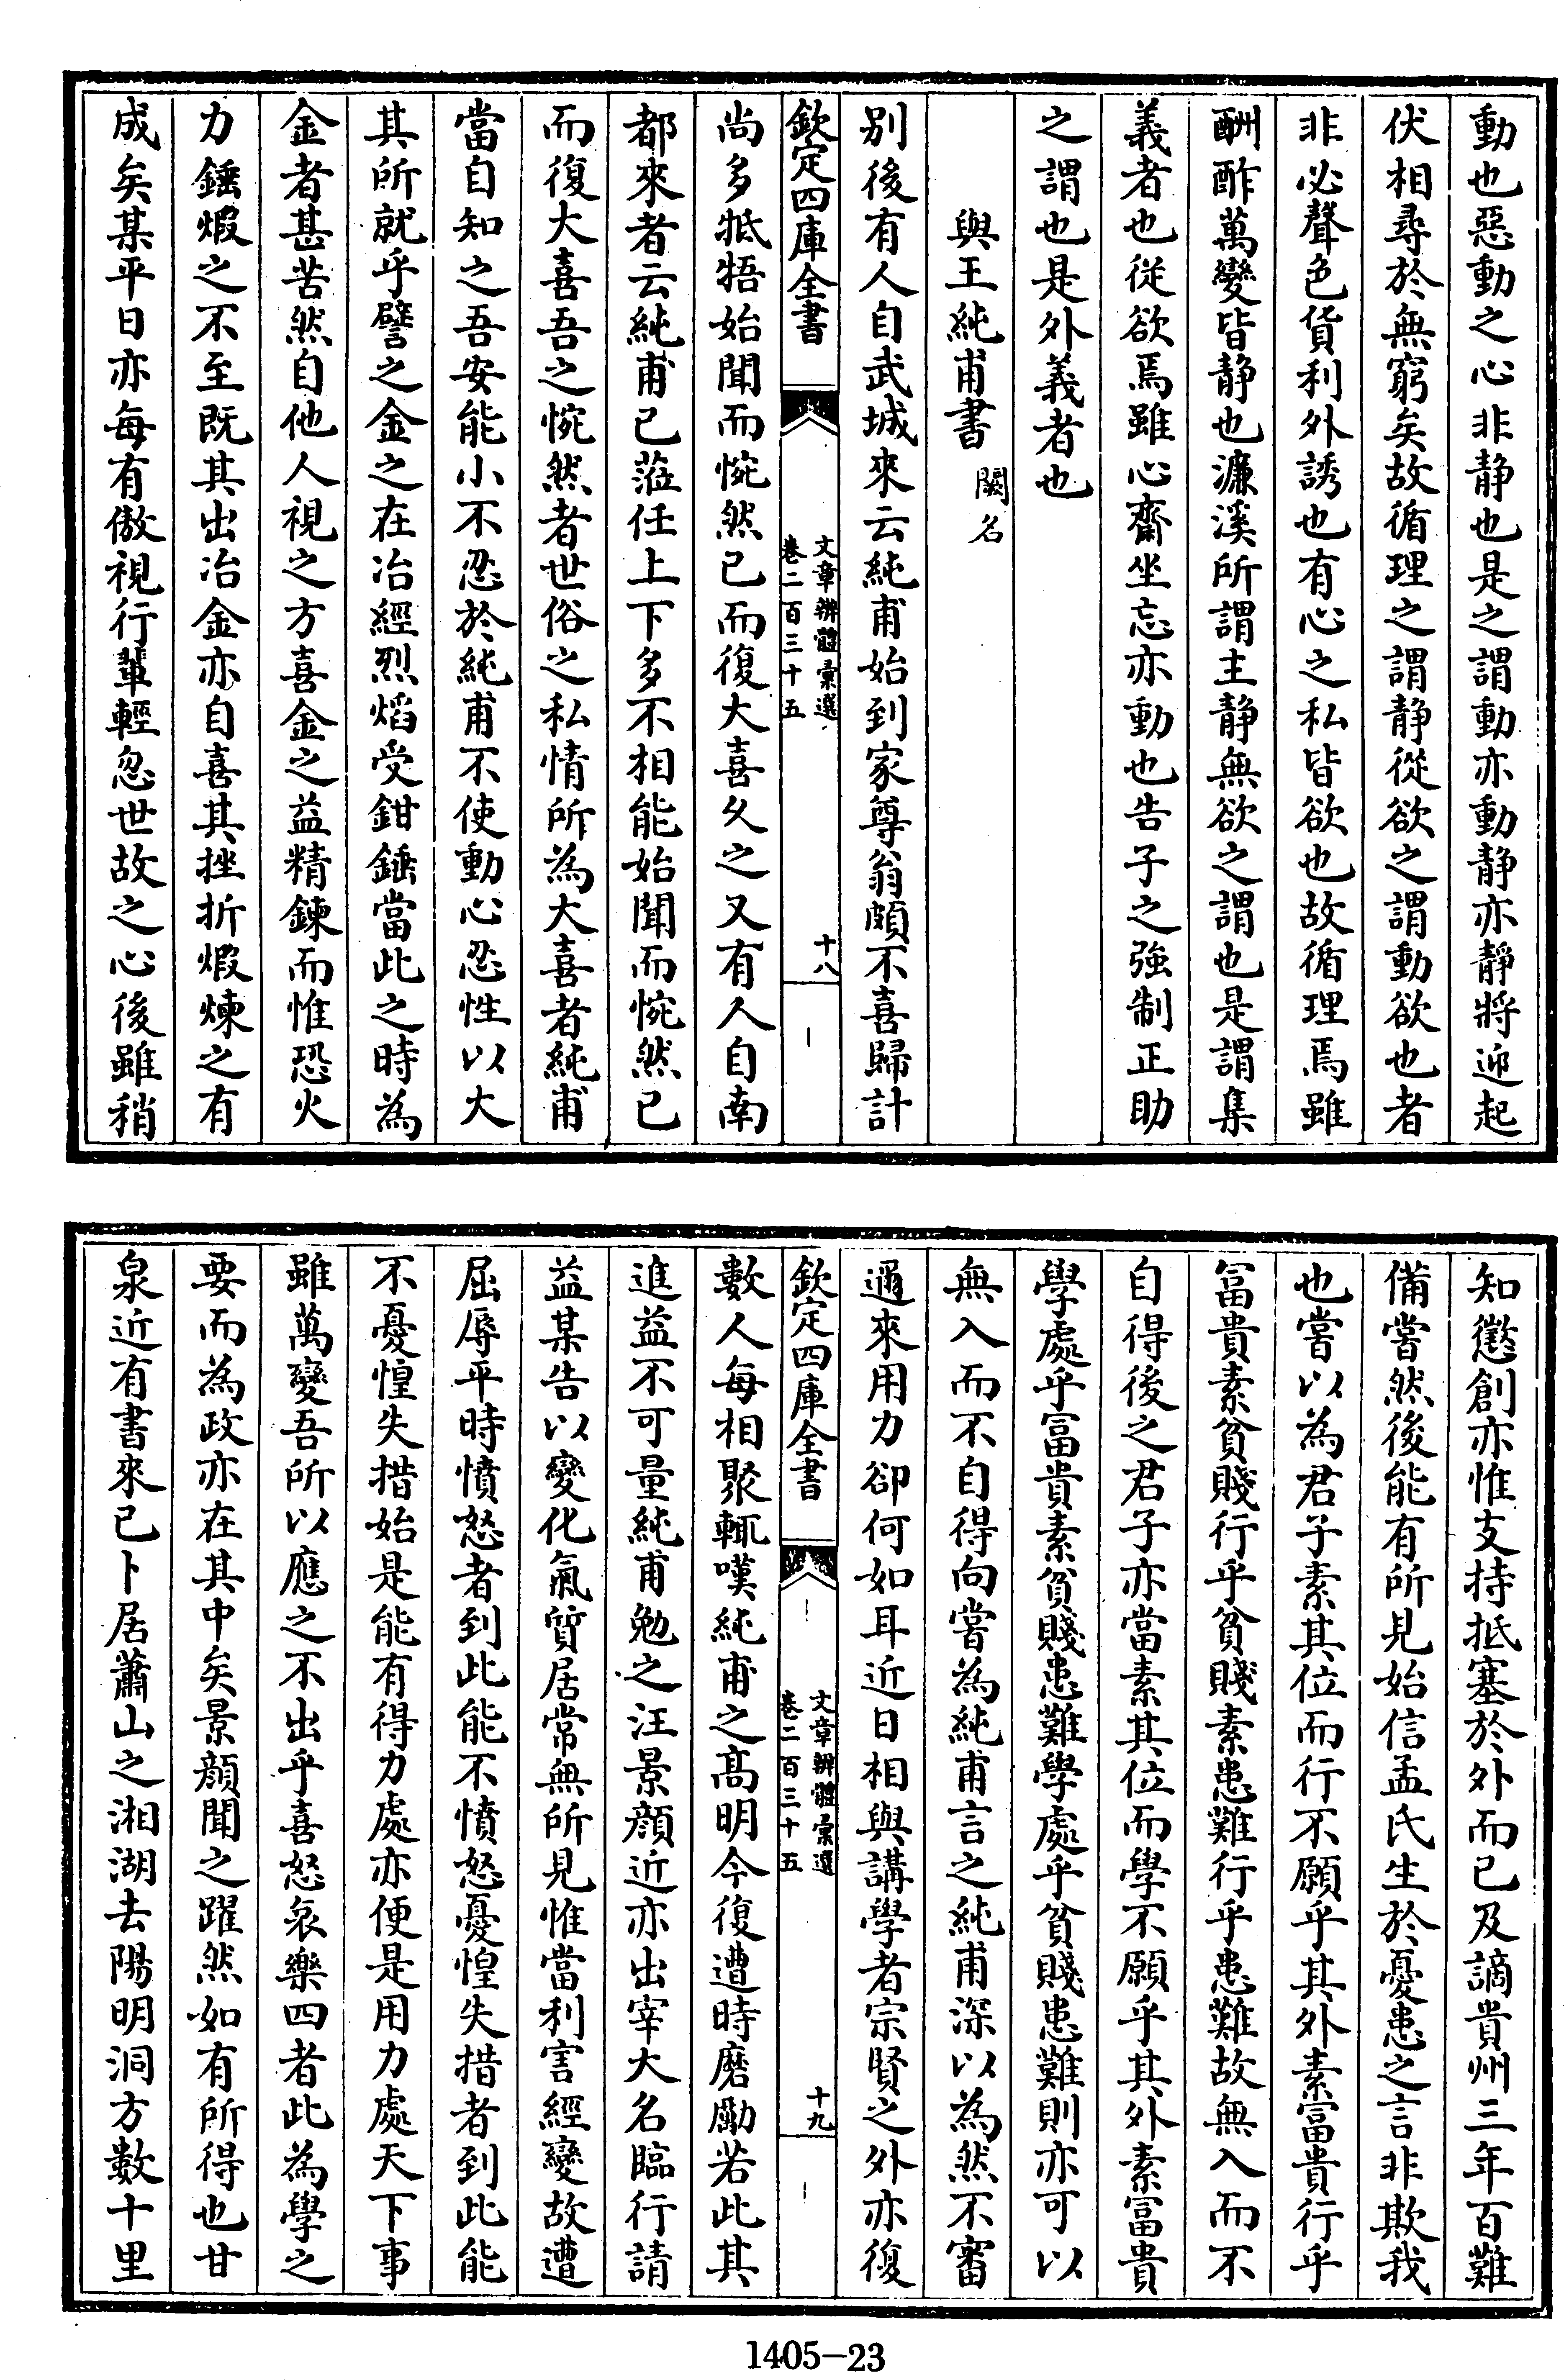 動也惡動之心非静也是之謂動亦動静亦靜將迎起
伏相尋於無窮矣故循理之謂静從欲之謂動欲也者
非必聲色貨利外誘也有心之私皆欲也故循理焉雖
酬酢萬變皆静也濂溪所謂主静無欲之謂也是謂集
義者也從欲焉雖心齋坐忘亦動也告子之強制正助
之謂也是外義者也
與王純甫書 闕名
别後有人自武城來云純甫始到家尊翁頗不喜歸計
欽定四庫全書
文章辨體彙選
卷二百三十五
十八
尚多牴牾始聞而惋然已而復大喜久之又有人自南
都來者云純甫已蒞任上下多不相能始聞而惋然已
而復大喜吾之惋然者世俗之私情所為大喜者純甫
當自知之吾安能小不忍於純甫不使動心忍性以大
其所就乎譬之金之在冶經烈焰受鉗錘當此之時為
金者甚苦然自他人視之方喜金之益精鍊而惟恐火
力錘煅之不至既其出冶金亦自喜其挫折煅煉之有
成矣某平日亦每有傲視行輩輕忽世故之心後雖稍
知懲創亦惟支持抵塞於外而已及謫貴州三年百難
備嘗然後能有所見始信孟氏生於憂患之言非欺我
也嘗以為君子素其位而行不願乎其外素富貴行乎
富貴素貧賤行乎貧賤素患難行乎患難故無入而不
自得後之君子亦當素其位而學不願乎其外素富貴
學處乎富貴素貧賤患難學處乎貧賤患難則亦可以
無入而不自得向嘗為純甫言之純甫深以為然不審
邇來用力卻何如耳近日相與講學者宗賢之外亦復
欽定四庫全書
文章辨體彙選
卷二百三十五
十九
數人每相聚輒嘆純甫之高明今復遭時磨勵若此其
進益不可量純甫勉之汪景顔近亦出宰大名臨行請
益某告以變化氣質居常無所見惟當利害經變故遭
屈辱平時憤怒者到此能不憤怒憂惶失措者到此能
不憂惶失措始是能有得力處亦便是用力處天下事
雖萬變吾所以應之不出乎喜怒哀樂四者此為學之
要而為政亦在其中矣景顔聞之躍然如有所得也甘
泉近有書來已卜居蕭山之湘湖去陽明洞方數十里
1405-23